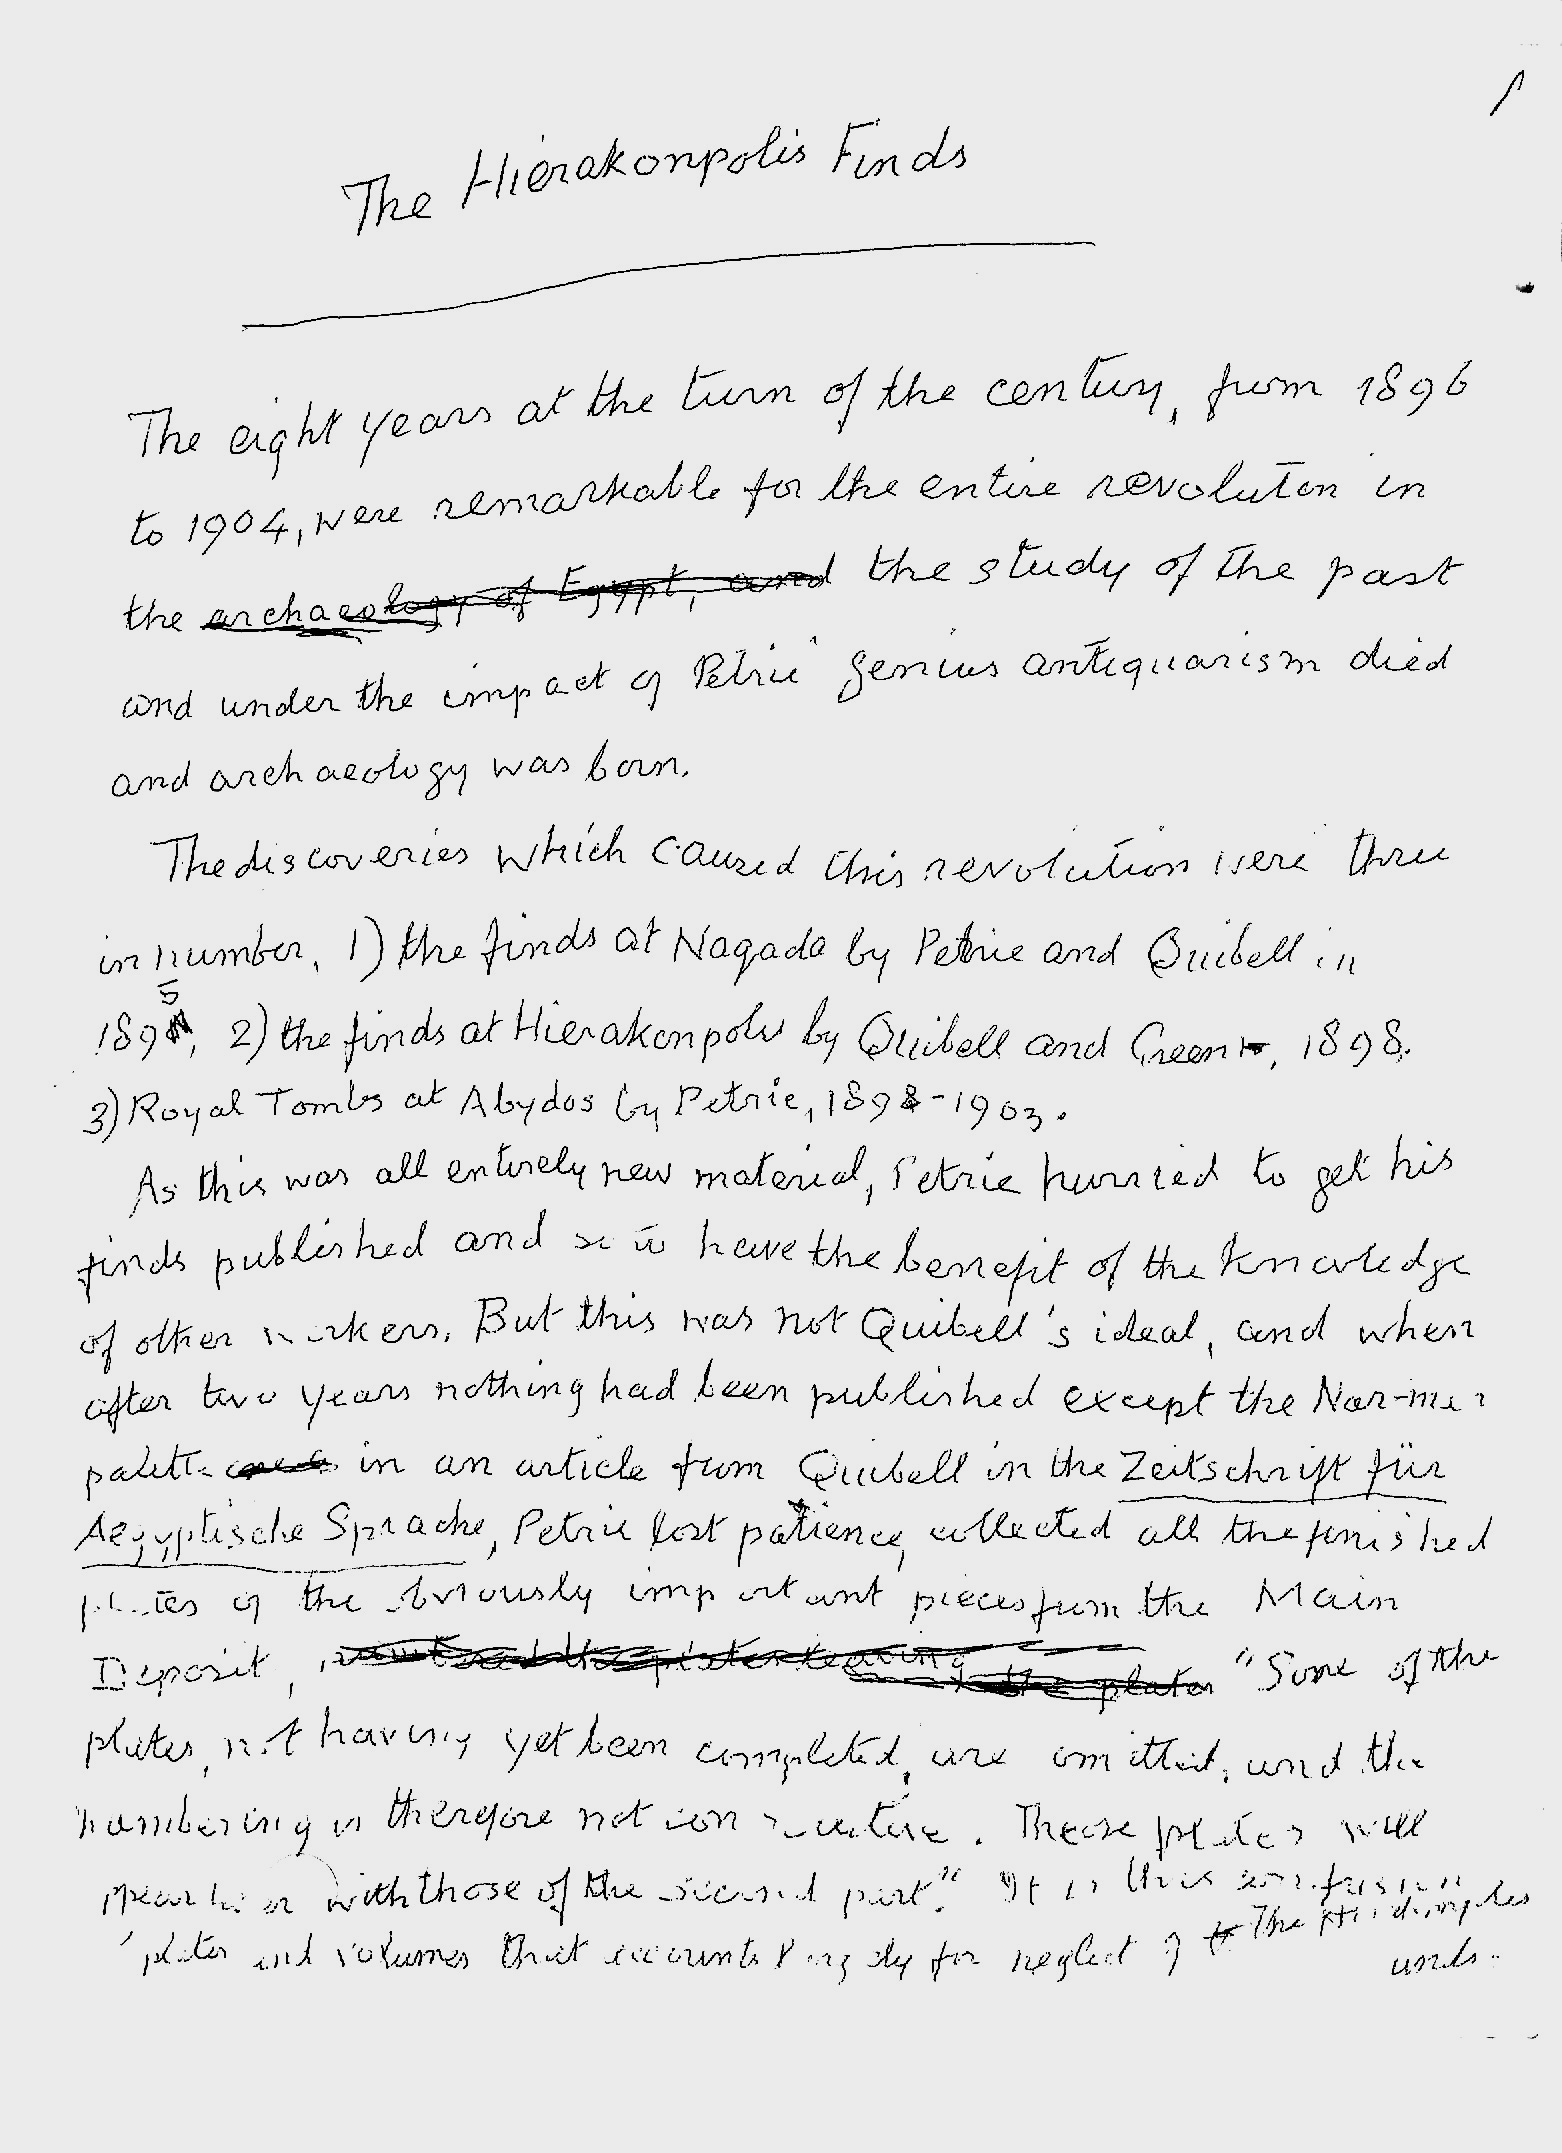 1
The Hierakonpolis Finds
The eight years at the turn of the century, from 1896
to 1904, were remarkable for the entire revolution in
the archaeology of Egypt, and the study of the past
and under the impact of Petrie' genius antiquarism died
and archaeology was born.
The discoveries which caused this revolution were three
in number, 1) the finds at Nagada by Petrie and Quibell in
1895, 2) the finds at Hierakonpolis by Quibell and Green, 1898.
3) Royal Tombs at Abydos by Petrie, 1898-1903.
As this was all entirely new material, Petrie hurried to get his
finds published and so to have the benefit of the knowledge
of other workers. But this was not Quibell's ideal, and when
after two years nothing had been published except the Nar-mer
palette in an article from Quibell in the Zeitschrift für
Aegyptische Sprache, Petrie lost patience, collected all the finished
plates of the obviously important pieces from the Main
Deposit, "Some of the
plates, not having yet been completed, are omitted, and the
numbering is therefore not consecutive. These plates will
appear later with those of the second part." It is this confusion
plates and volumes that accounts largely for neglect of The